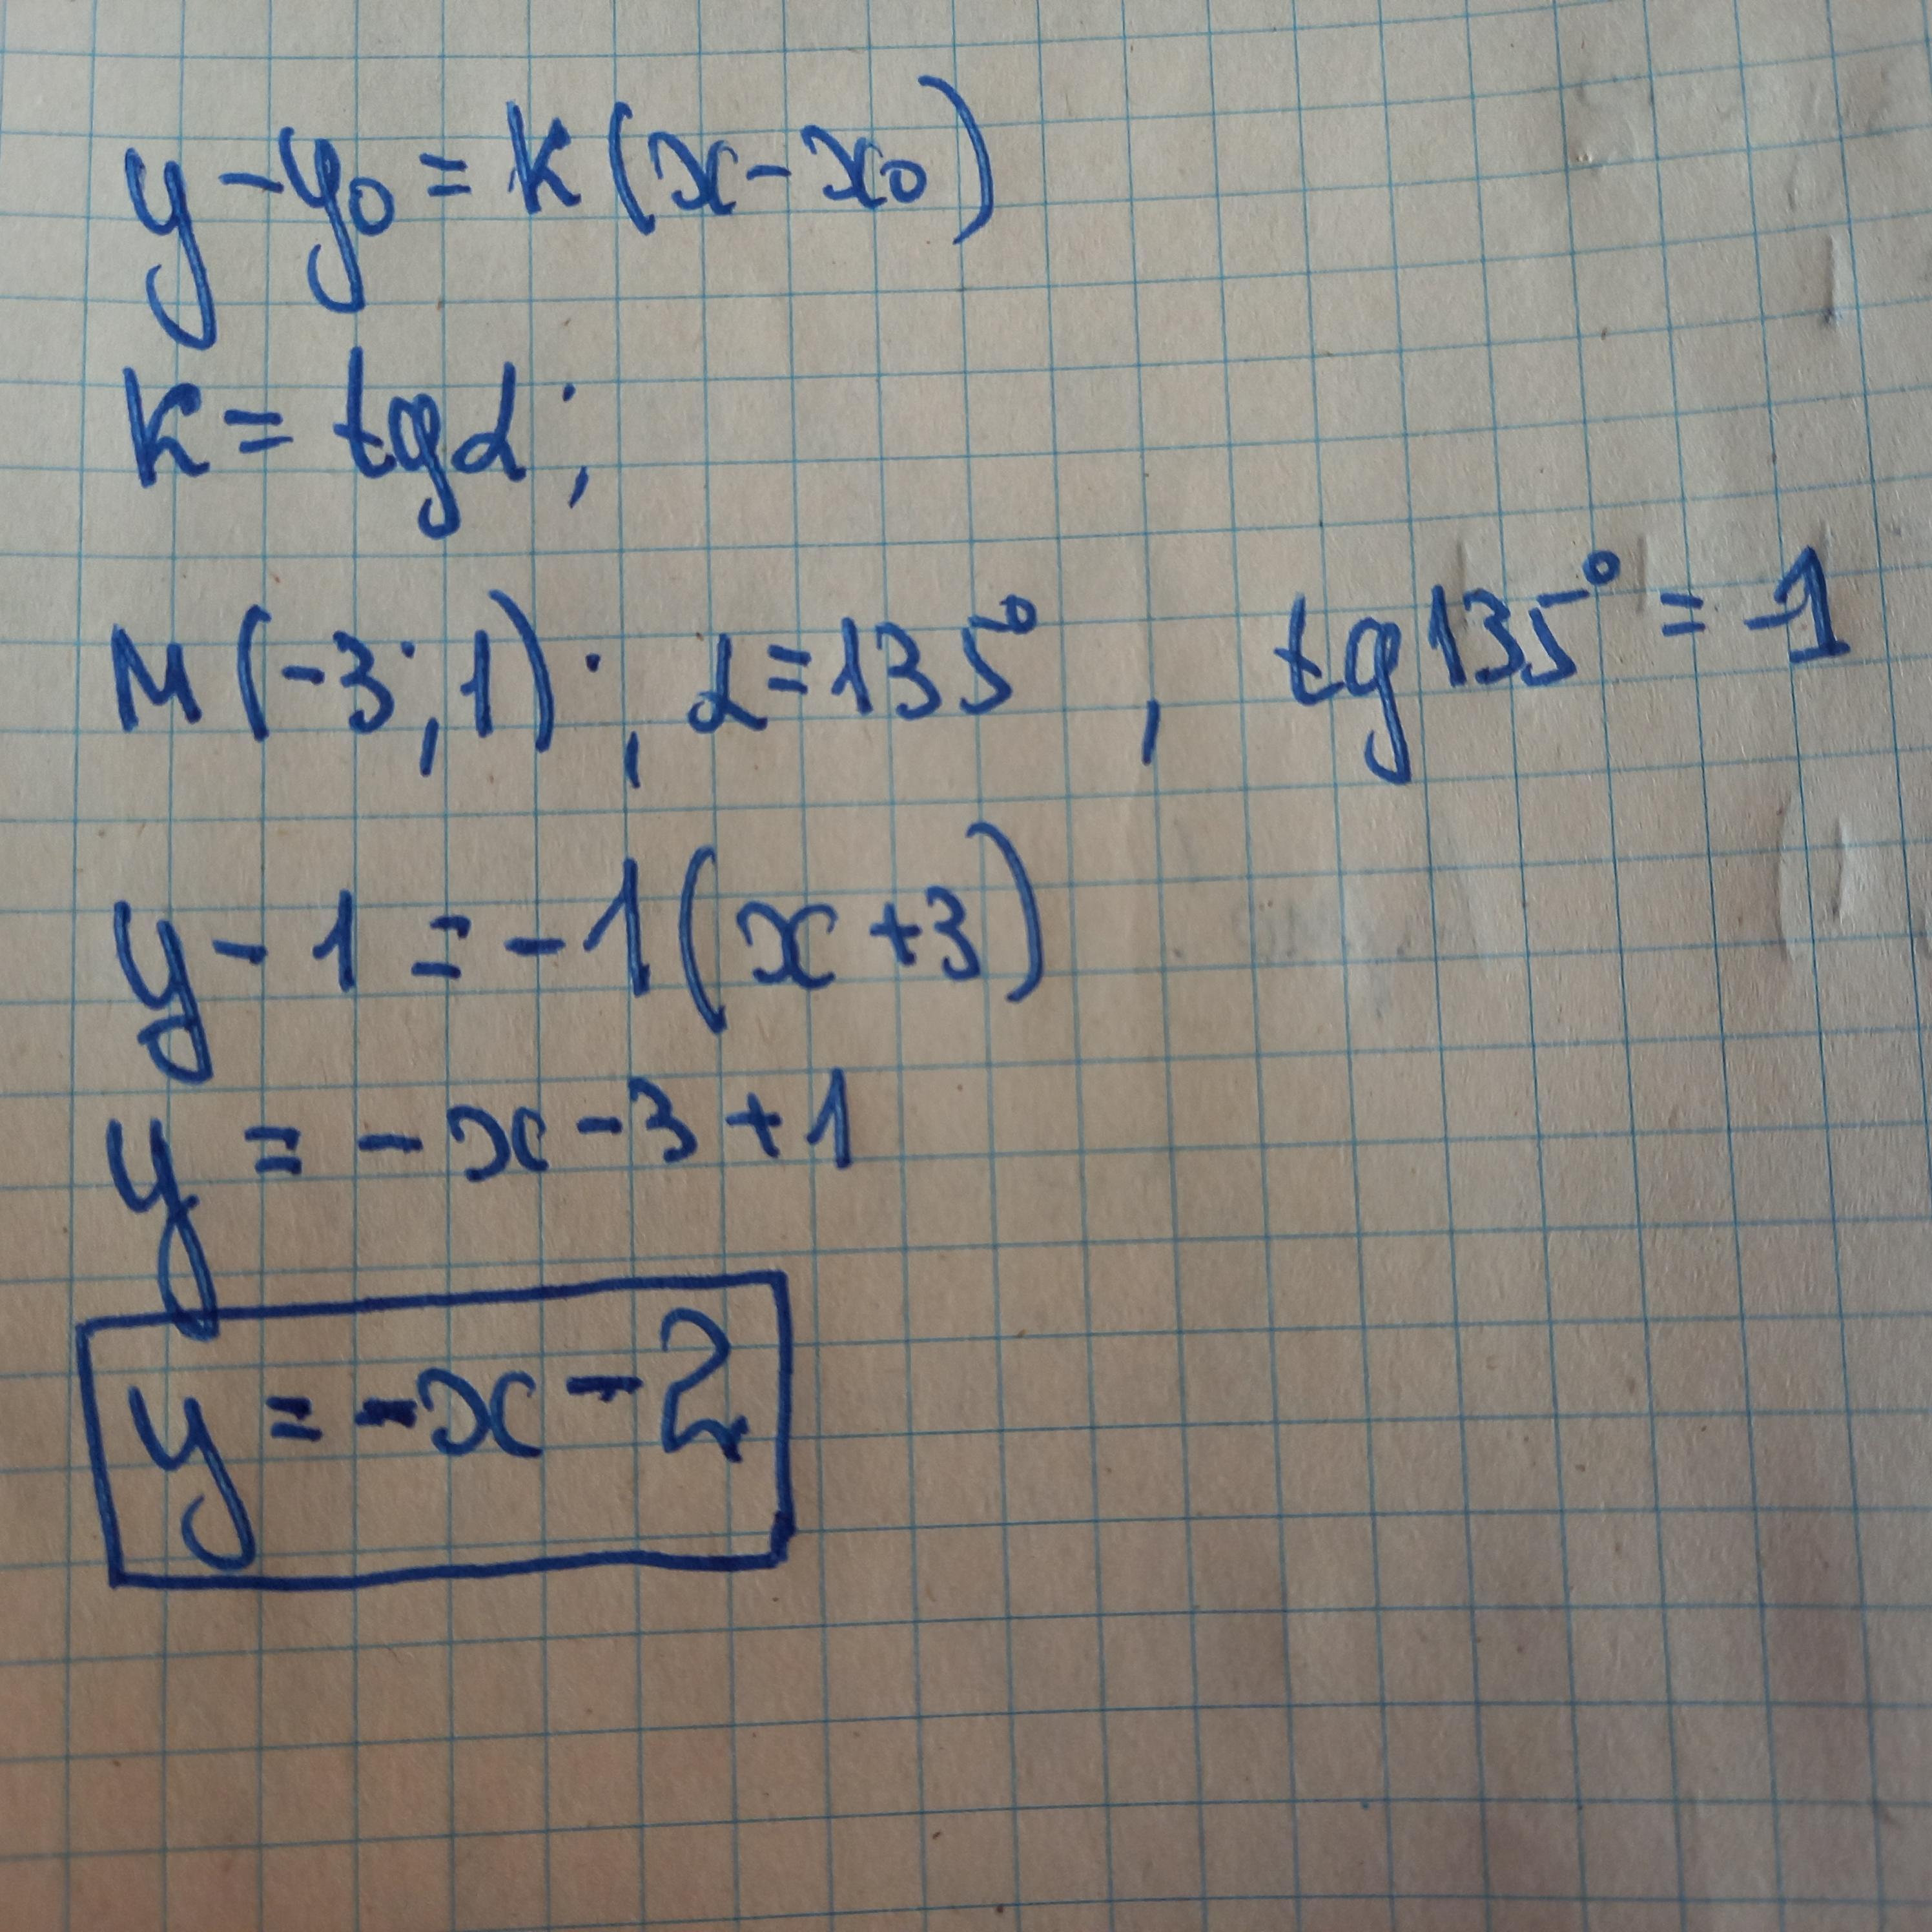 y - y₀ = k(x - x₀)
k = tgα;
M(-3; 1); α = 135°, tg 135° = -1
y - 1 = -1(x + 3)
y = -x - 3 + 1
y = -x - 2